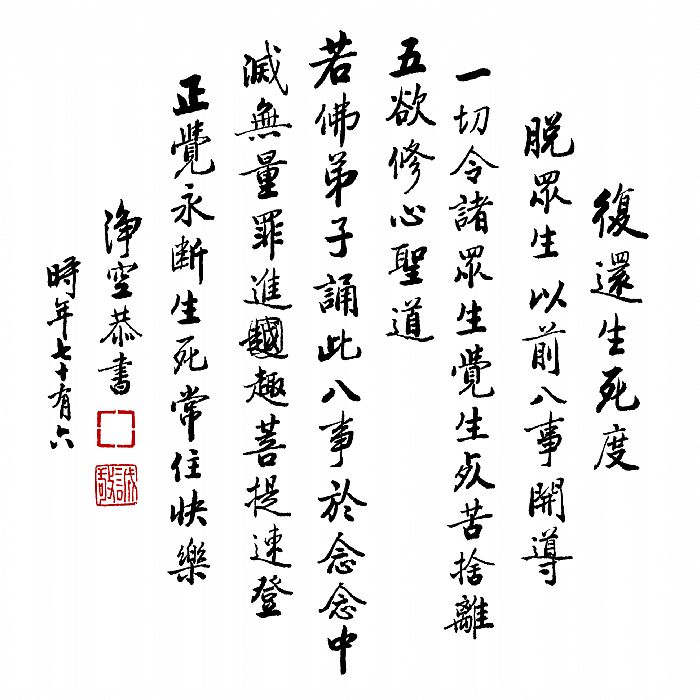 復還生死度
脫眾生以前八事開導
一切令諸眾生覺生死苦捨離
五欲修心聖道
若佛弟子誦此八事於念念中
滅無量罪進趣菩提速登
正覺永斷生死常住快樂
淨空恭書
時年七十有六
誠敬